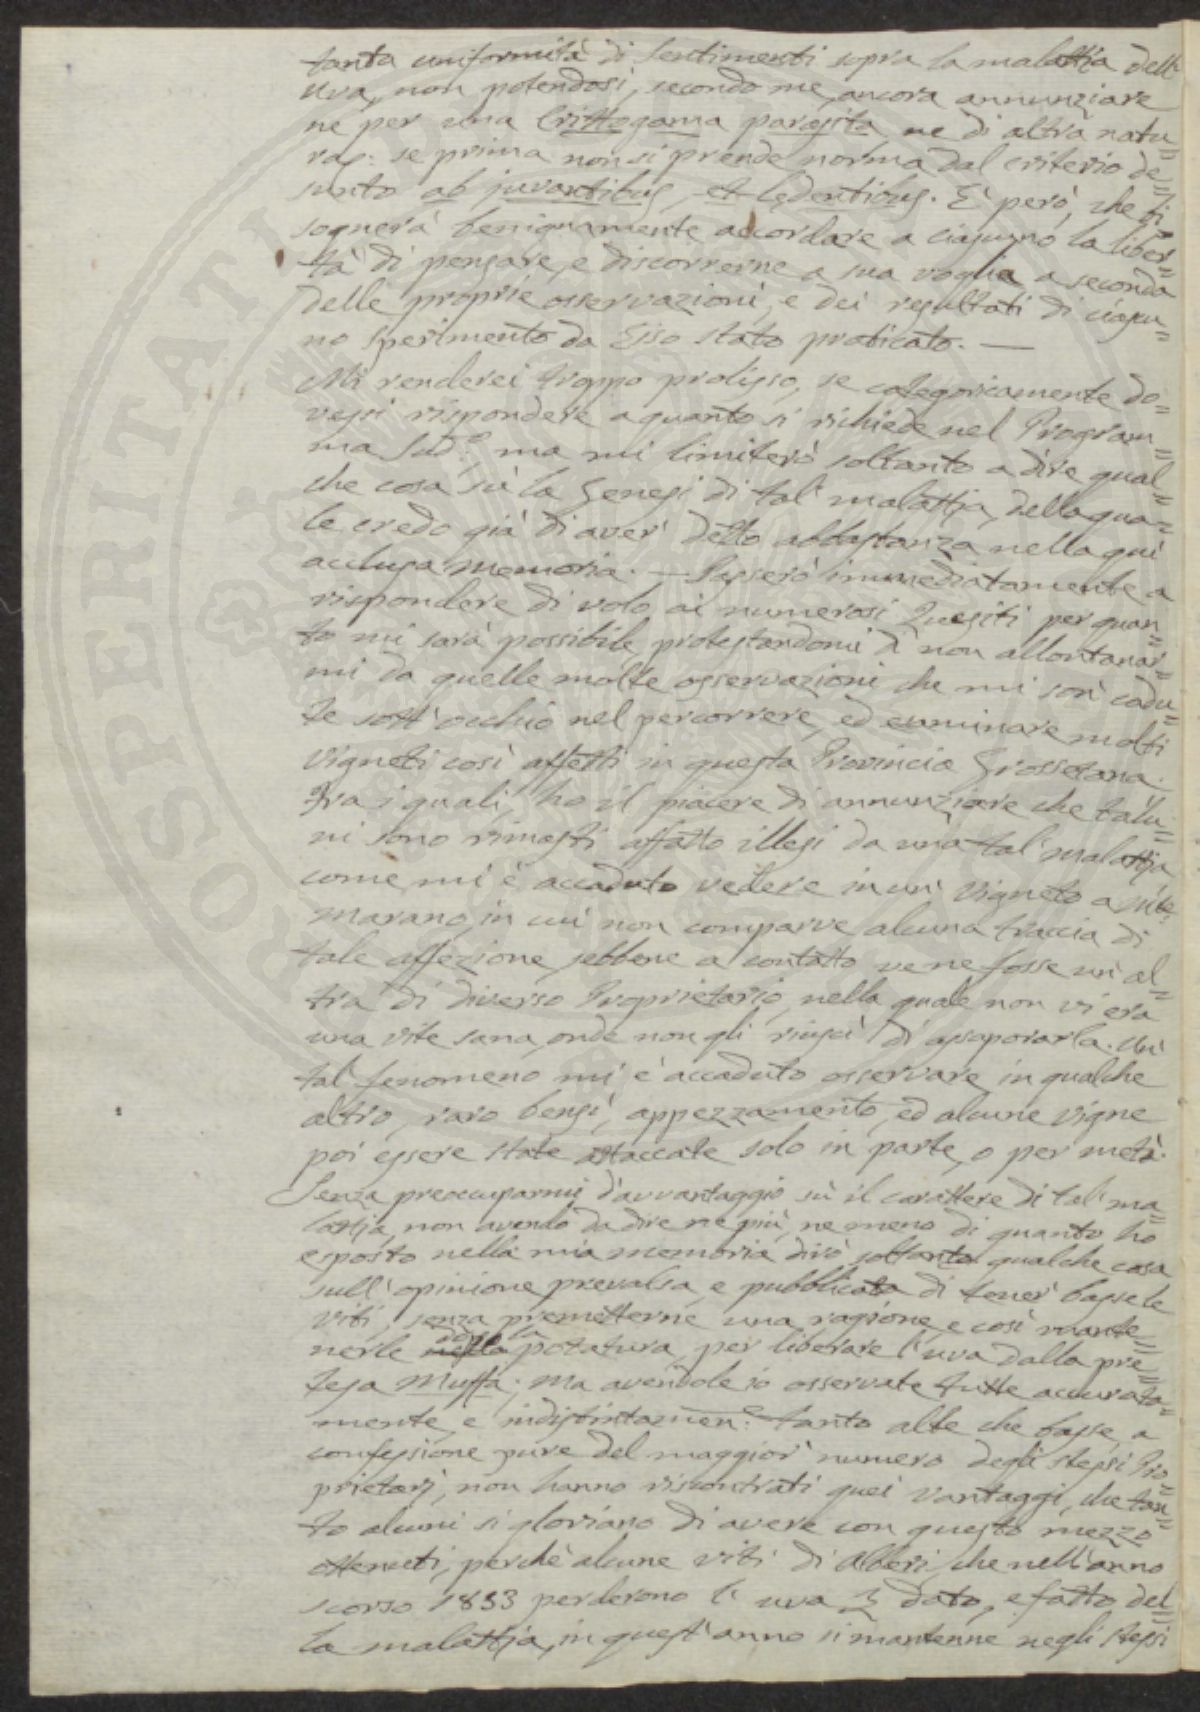 tanta uniformità di sentimenti sopra la malattia dell'
uva, non potendosi, secondo me, ancora annunziare
ne per una Crittogama parasita ne di altra natu=
ra; se prima non si prende norma dal criterio de=
sunto ab juvantibus, et ledentibus. E però, che bi=
sognerà benignamente accordare a ciascuno la liber=
tà di pensare, e discorrerne a sua voglia a seconda
delle proprie osservazioni, e dei resultati di ciascu=
no sperimento da Esso stato praticato. —
Mi renderei troppo prolisso, se categoricamente do=
vessi rispondere a quanto si richiede nel Program=
ma Sud.º, ma mi limiterò soltanto a dire qual=
che cosa sù la Genesi di tal malattia, della qua=
le credo già di aver detto abbastanza nella quì
acclusa memoria. — Passerò immediatamente a
rispondere di volo ai numerosi Quesiti per quan=
to mi sarà possibile, protestandomi di non allontanar=
mi da quelle molte osservazioni che mi son cadu=
te sott'occhio nel percorrere, ed esaminare molti
Vigneti così affetti in questa Provincia Grossetana.
Tra i quali, ho il piacere di annunziare che talu=
ni sono rimasti affatto illesi da una tal malattia
come mi è accaduto vedere in un Vigneto a
marano, in cui non comparve alcuna traccia di
tale affezione sebbene a contatto ve ne fosse un al=
tra di diverso Proprietario, nella quale non vi era
una vite sana, onde non gli riuscì di assaporarla. Un
tal fenomeno mi è accaduto osservare in qualche
altro, raro bensì, appezzamento, ed alcune vigne
poi essere state attaccate solo in parte, o per metà.
Senza preoccuparmi d'avvantaggio sù il carattere di tal ma=
lattia, non avendo da dire ne più, ne meno di quanto ho
esposto nella mia memoria dirò soltanto qualche cosa
sull'opinione prevalsa, e pubblicata di tener basse le
viti, senza premetterne una ragione, e così mante=
nerle dopo la potatura, per liberare l'uva dalla pre=
tesa Muffa; ma avendole io osservate tutte accurata=
mente, e indistintamen.e tanto alte che basse, a
confessione pure del maggior numero degli stessi Pro=
prietarj, non hanno riscontrati quei vantaggi, che tan=
to alcuni si gloriano di avere con questo mezzo
ottenuti, perchè alcune viti di Alberi, che nell'anno
scorso 1853 perderono l'uva dato, e fatto del=
la malattia, in quest'anno si mantenne negli stessi